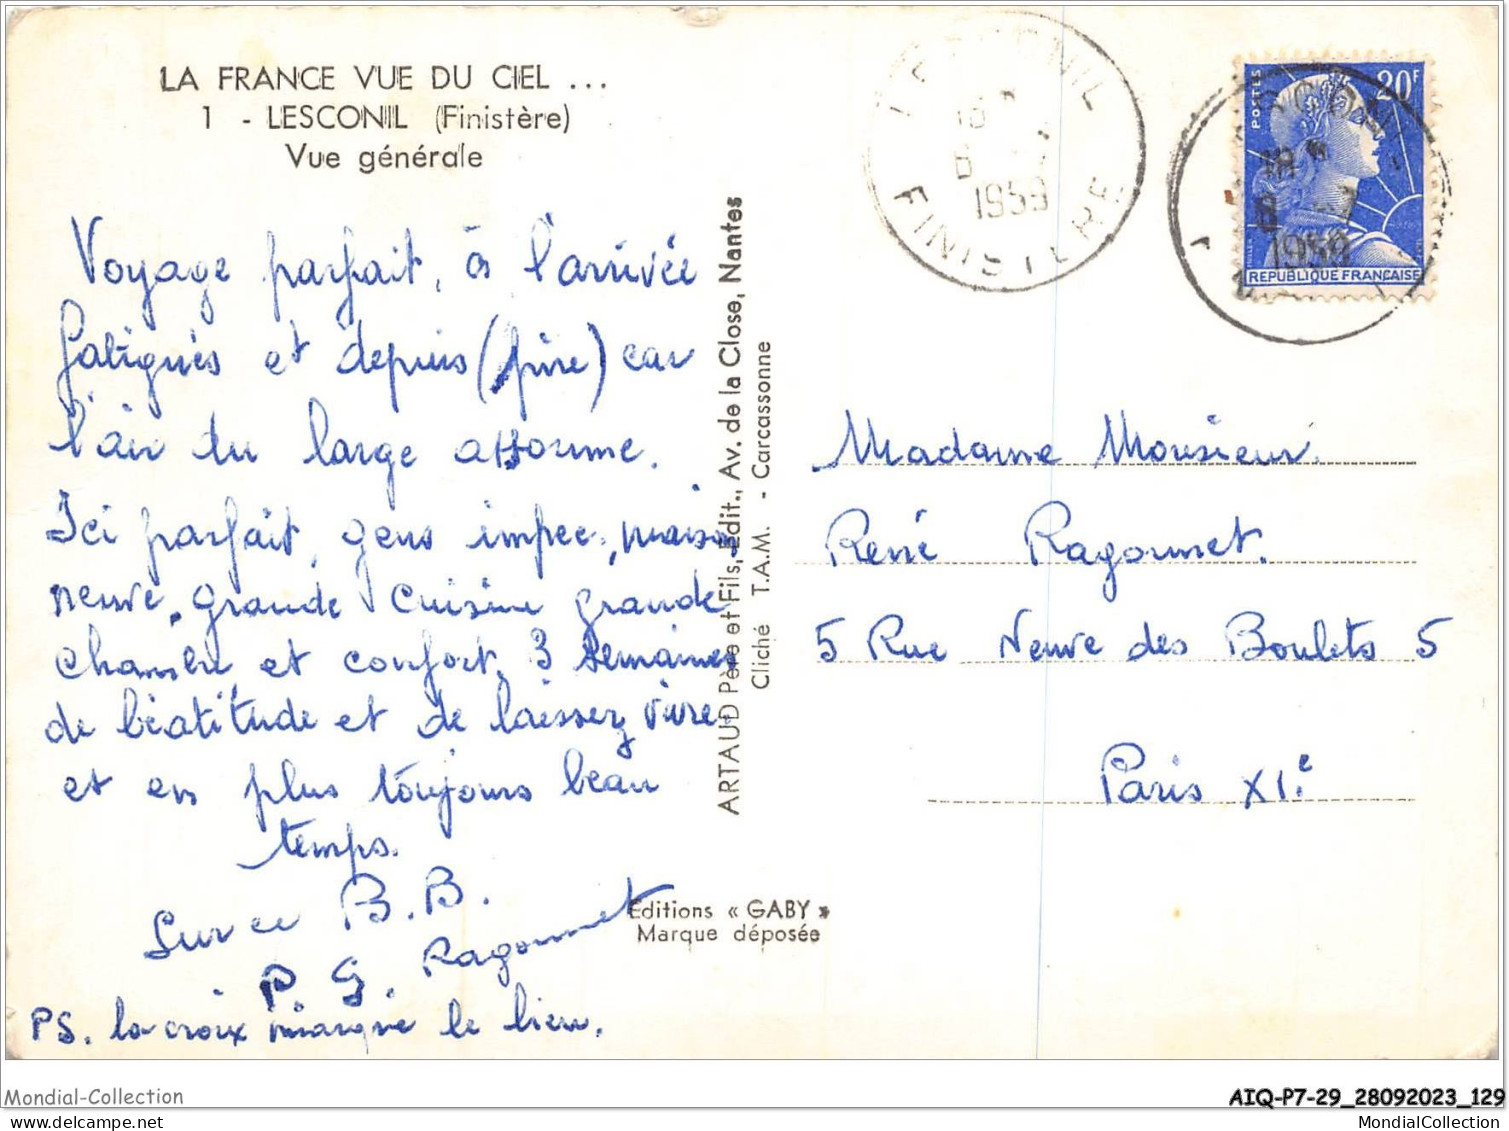 LA FRANCE VUE DU CIEL ...
1 - LESCONIL (Finistère)
Vue générale
Voyage parfait, à l'arrivée
fatigués et depuis (pire) car
l'air du large assomme.
Ici parfait, gens impec, maison
neuve, grande cuisine grande
chambre et confort. 3 semaines
de béatitude et de laissez vivre
et en plus toujours beau
temps.
Sur ce B.B.
P. G. Ragonnet
PS. la croix marque le lieu.
ARTAUD Père et Fils, Edit., Av. de la Close, Nantes
Cliché T.A.M. - Carcassonne
Editions « GABY »
Marque déposée
18
6
1959
FINISTERE
POSTES
20F
18
6
1959
REPUBLIQUE FRANÇAISE
Madame Monsieur
René Ragonnet.
5 Rue Neuve des Boulets 5
Paris XIe
Mondial-Collection
AIQ-P7-29_28092023_129
MondialCollection